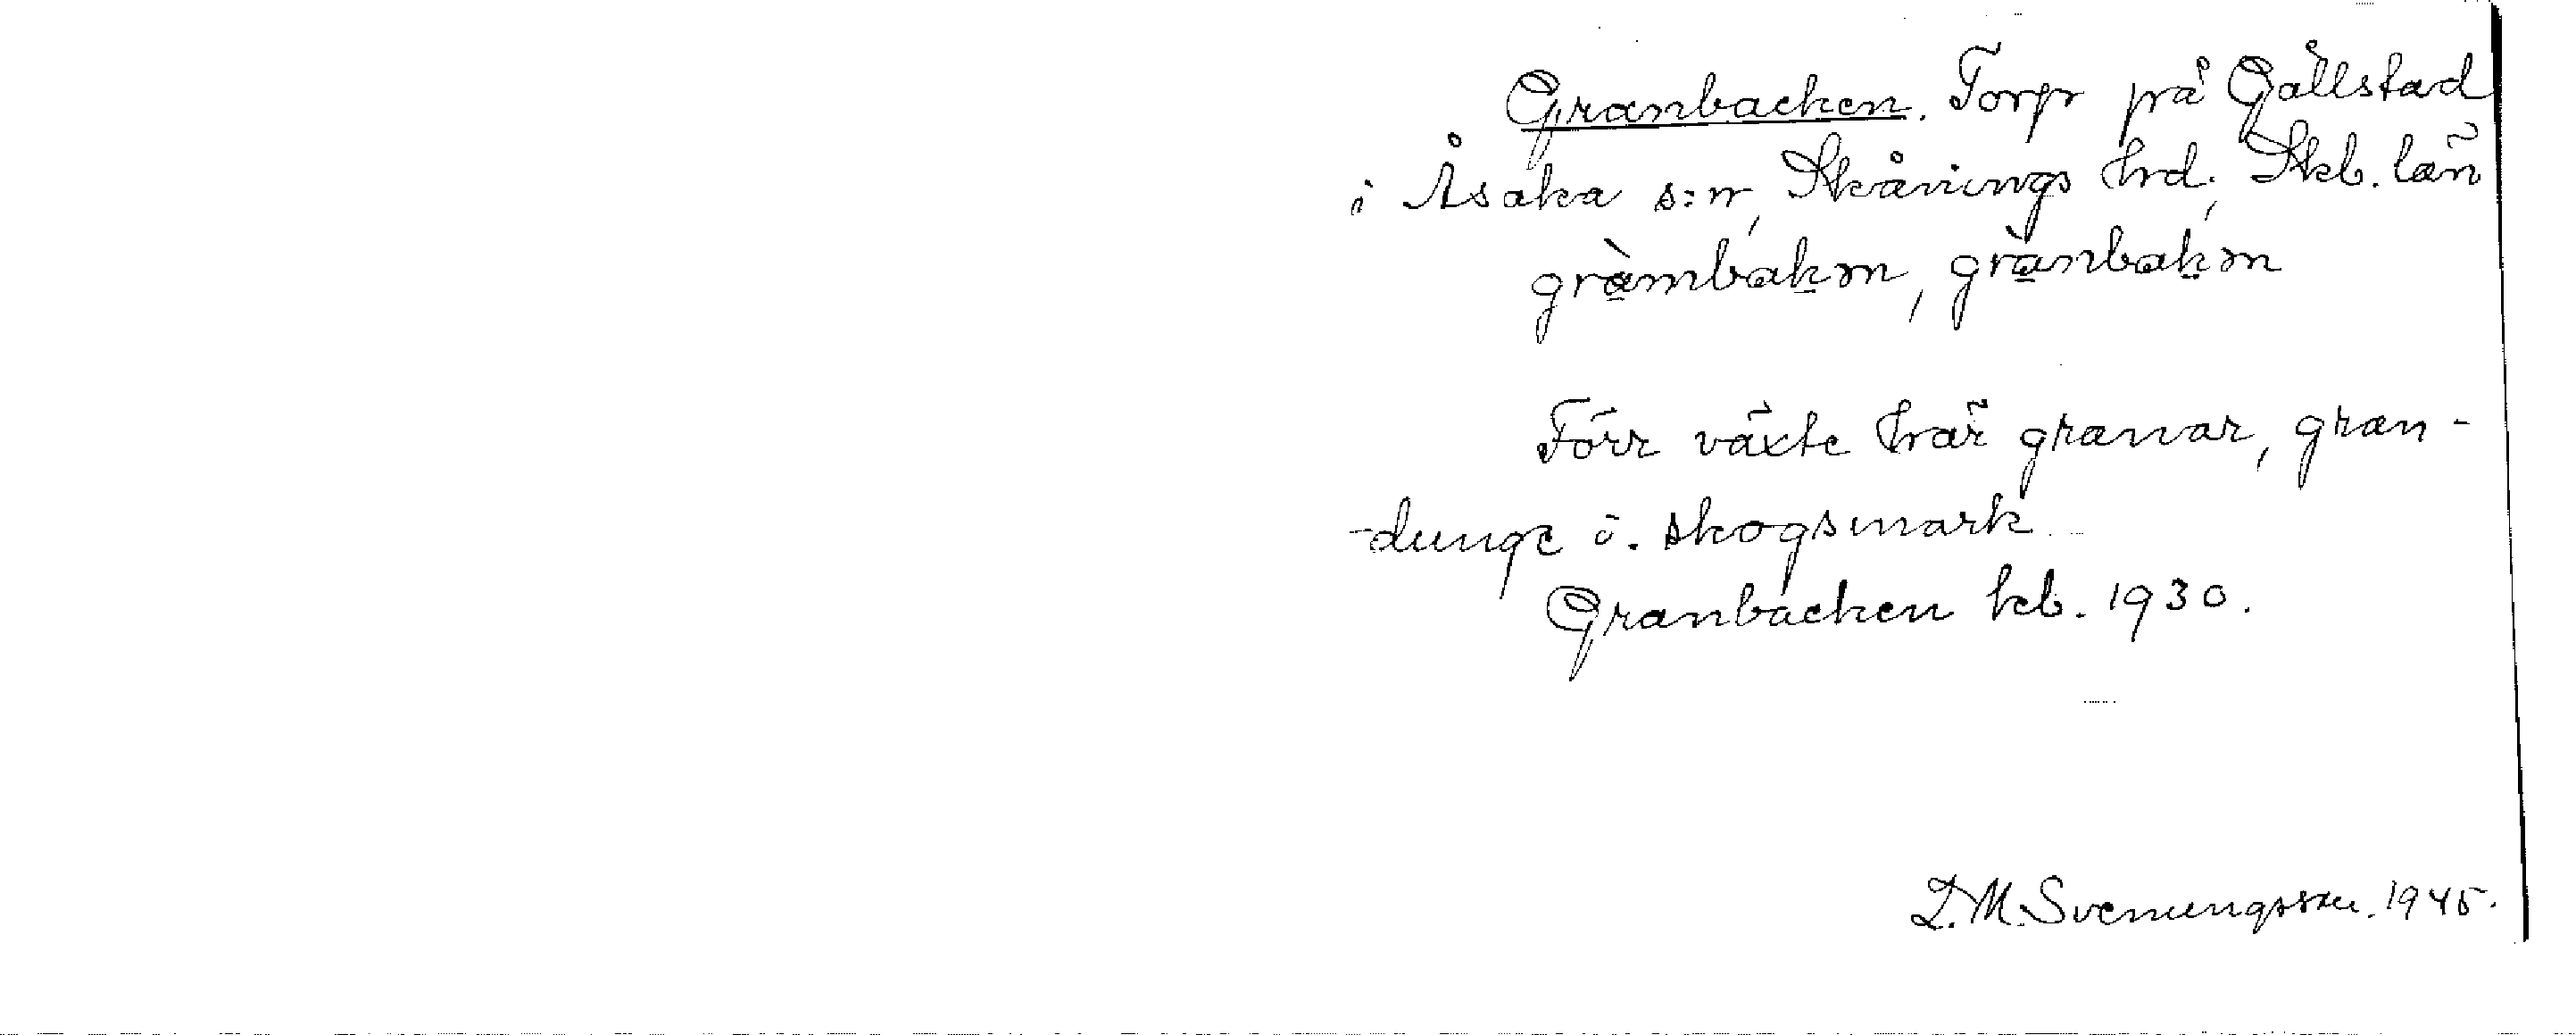 Granbacken. Torp på Gållstad
i Åsaka s:n, Skånings hrd, Skb. län
gràmbakm, grànbakm
Förr växte här granar, gran-
-dunge i. skogsmark
Granbacken kb. 1930.
D. M. Svenungsson. 1945.